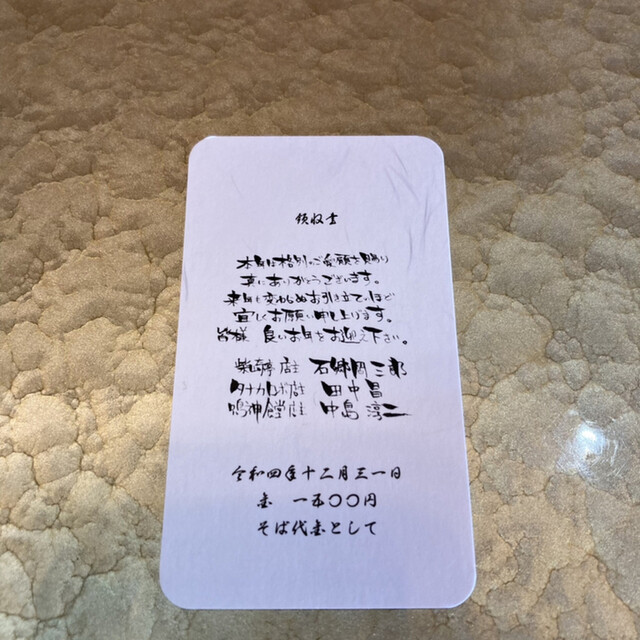 領収書
本年は格別のご愛顧を賜り
真にありがとうございます。
来年も変わらぬお引き立てのほど
宜しくお願い申し上げます。
皆様 良いお年をお迎え下さい。
店主 石郷岡三郎
タナカロボ店主 田中昌
鳴神堂店主 中島淳二
令和四年十二月三一日
金 一五〇〇円
そば代金として